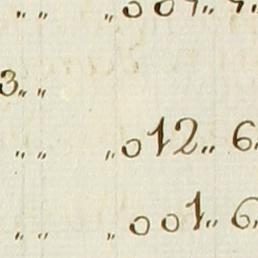 „ „ „ 007„ 7„
3„ „
„ „ „ 012„ 6„
„ „ „ 001„ 6„